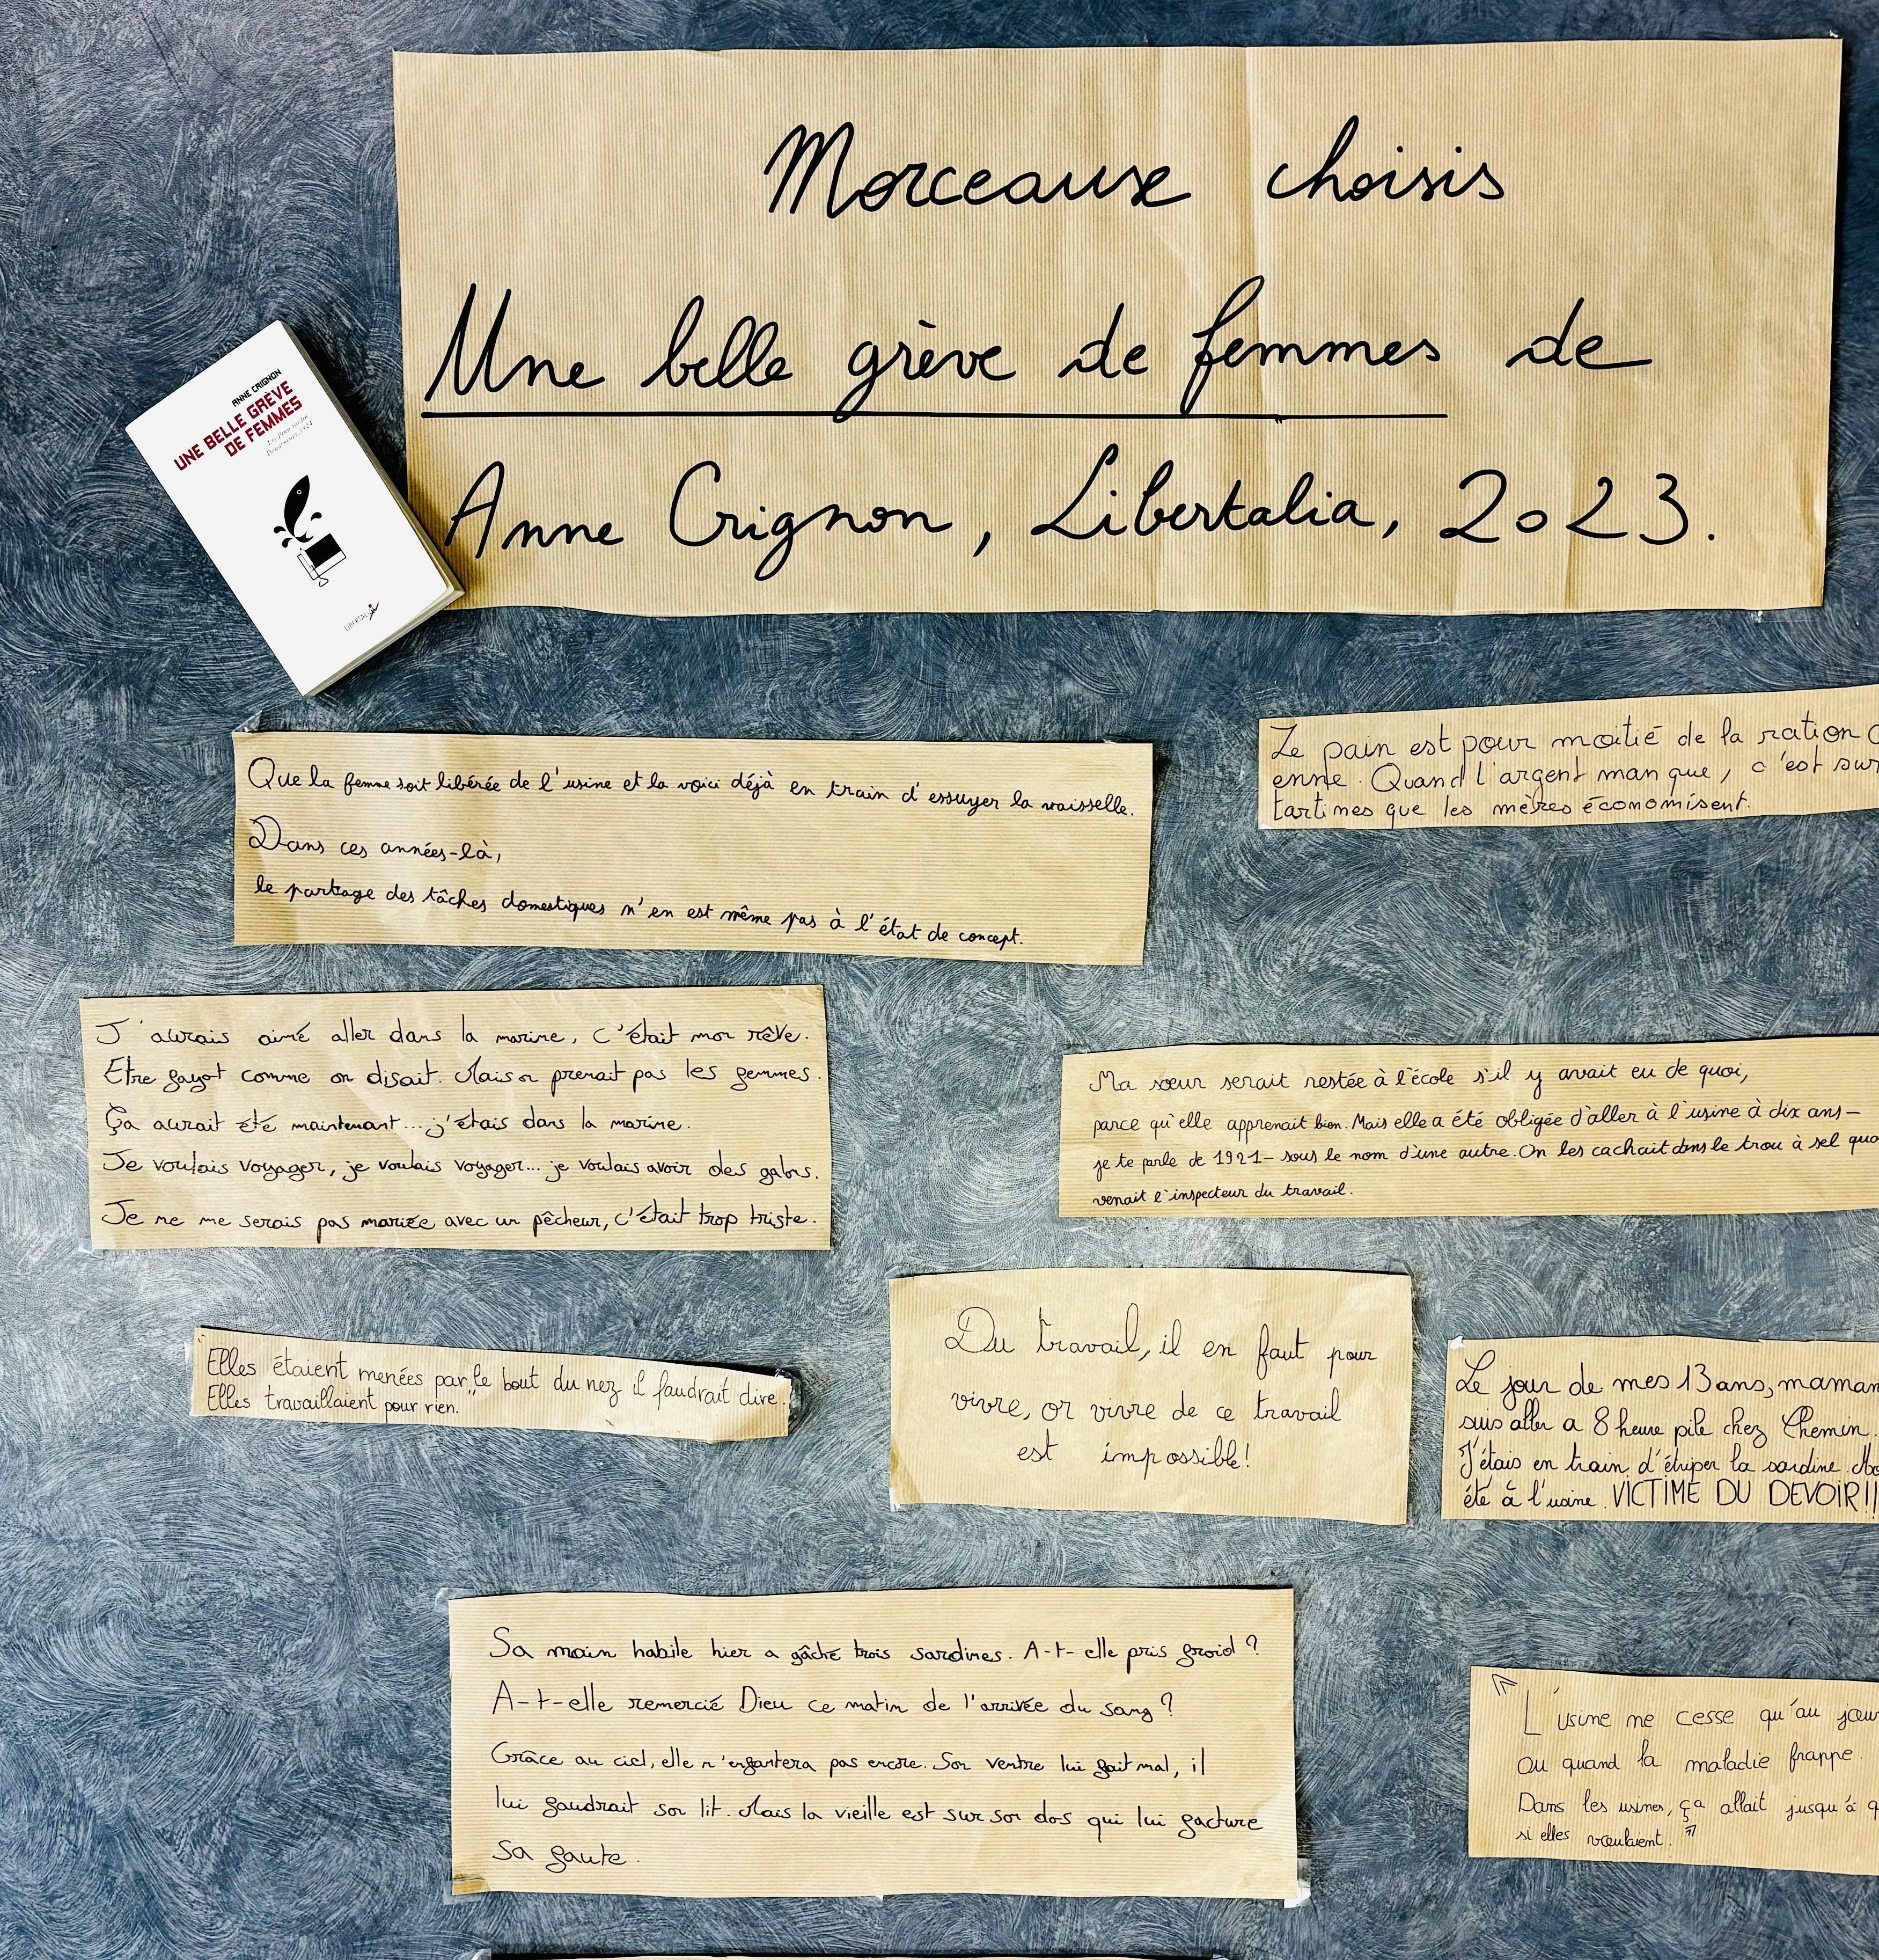 Morceaux choisis
Une belle grève de femmes de
Anne Crignon, Libertalia, 2023.
ANNE CRIGNON
UNE BELLE GRÈVE
DE FEMMES
Douarnenez, 1924
LIBERTALIA
Que la femme soit libérée de l'usine et la voici déjà en train d'essuyer la vaisselle.
Dans ces années-là,
le partage des tâches domestiques n'en est même pas à l'état de concept.
Le pain est pour moitié de la ration
enne. Quand l'argent manque, c'est sur
tartines que les mères économisent.
J'aurais aimé aller dans la marine, c'était mon rêve.
Etre fayot comme on disait. Mais on prenait pas les femmes.
Ça aurait été maintenant... j'étais dans la marine.
Je voulais voyager, je voulais voyager... je voulais avoir des galons.
Je ne me serais pas mariée avec un pêcheur, c'était trop triste.
Ma sœur serait restée à l'école s'il y avait eu de quoi,
parce qu'elle apprenait bien. Mais elle a été obligée d'aller à l'usine à dix ans—
je te parle de 1921- sous le nom d'une autre. On les cachait dans le trou à sel qua
venait l'inspecteur du travail.
Elles étaient menées par le bout du nez il faudrait dire.
Elles travaillaient pour rien.
Du travail, il en faut pour
vivre, or vivre de ce travail
est impossible!
Le jour de mes 13 ans, maman
suis aller a 8 heure pile chez Chemin.
J'étais en train d'étriper la sardine.
été à l'usine. VICTIME DU DEVOIR!!
Sa main habile hier a gâché trois sardines. A-t-elle pris froid ?
A-t-elle remercié Dieu ce matin de l'arrivée du sang ?
Grâce au ciel, elle n'enfantera pas encore. Son ventre lui fait mal, il
lui faudrait son lit. Mais la vieille est sur son dos qui lui facture
sa faute.
« L'usine ne cesse qu'au
ou quand la maladie frappe.
Dans les usines, ça allait jusqu'à
si elles voulaient. »